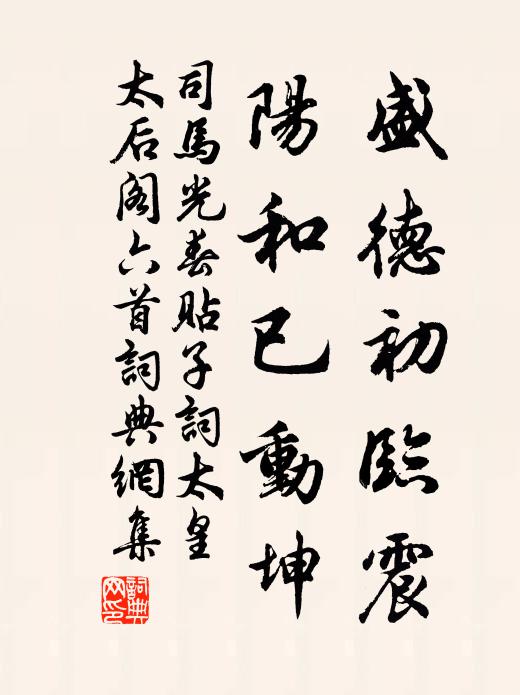 盛德初臨震
陽和已動坤
司馬光春貼子詞太皇
太后閣六首詞典網集
詞典網印